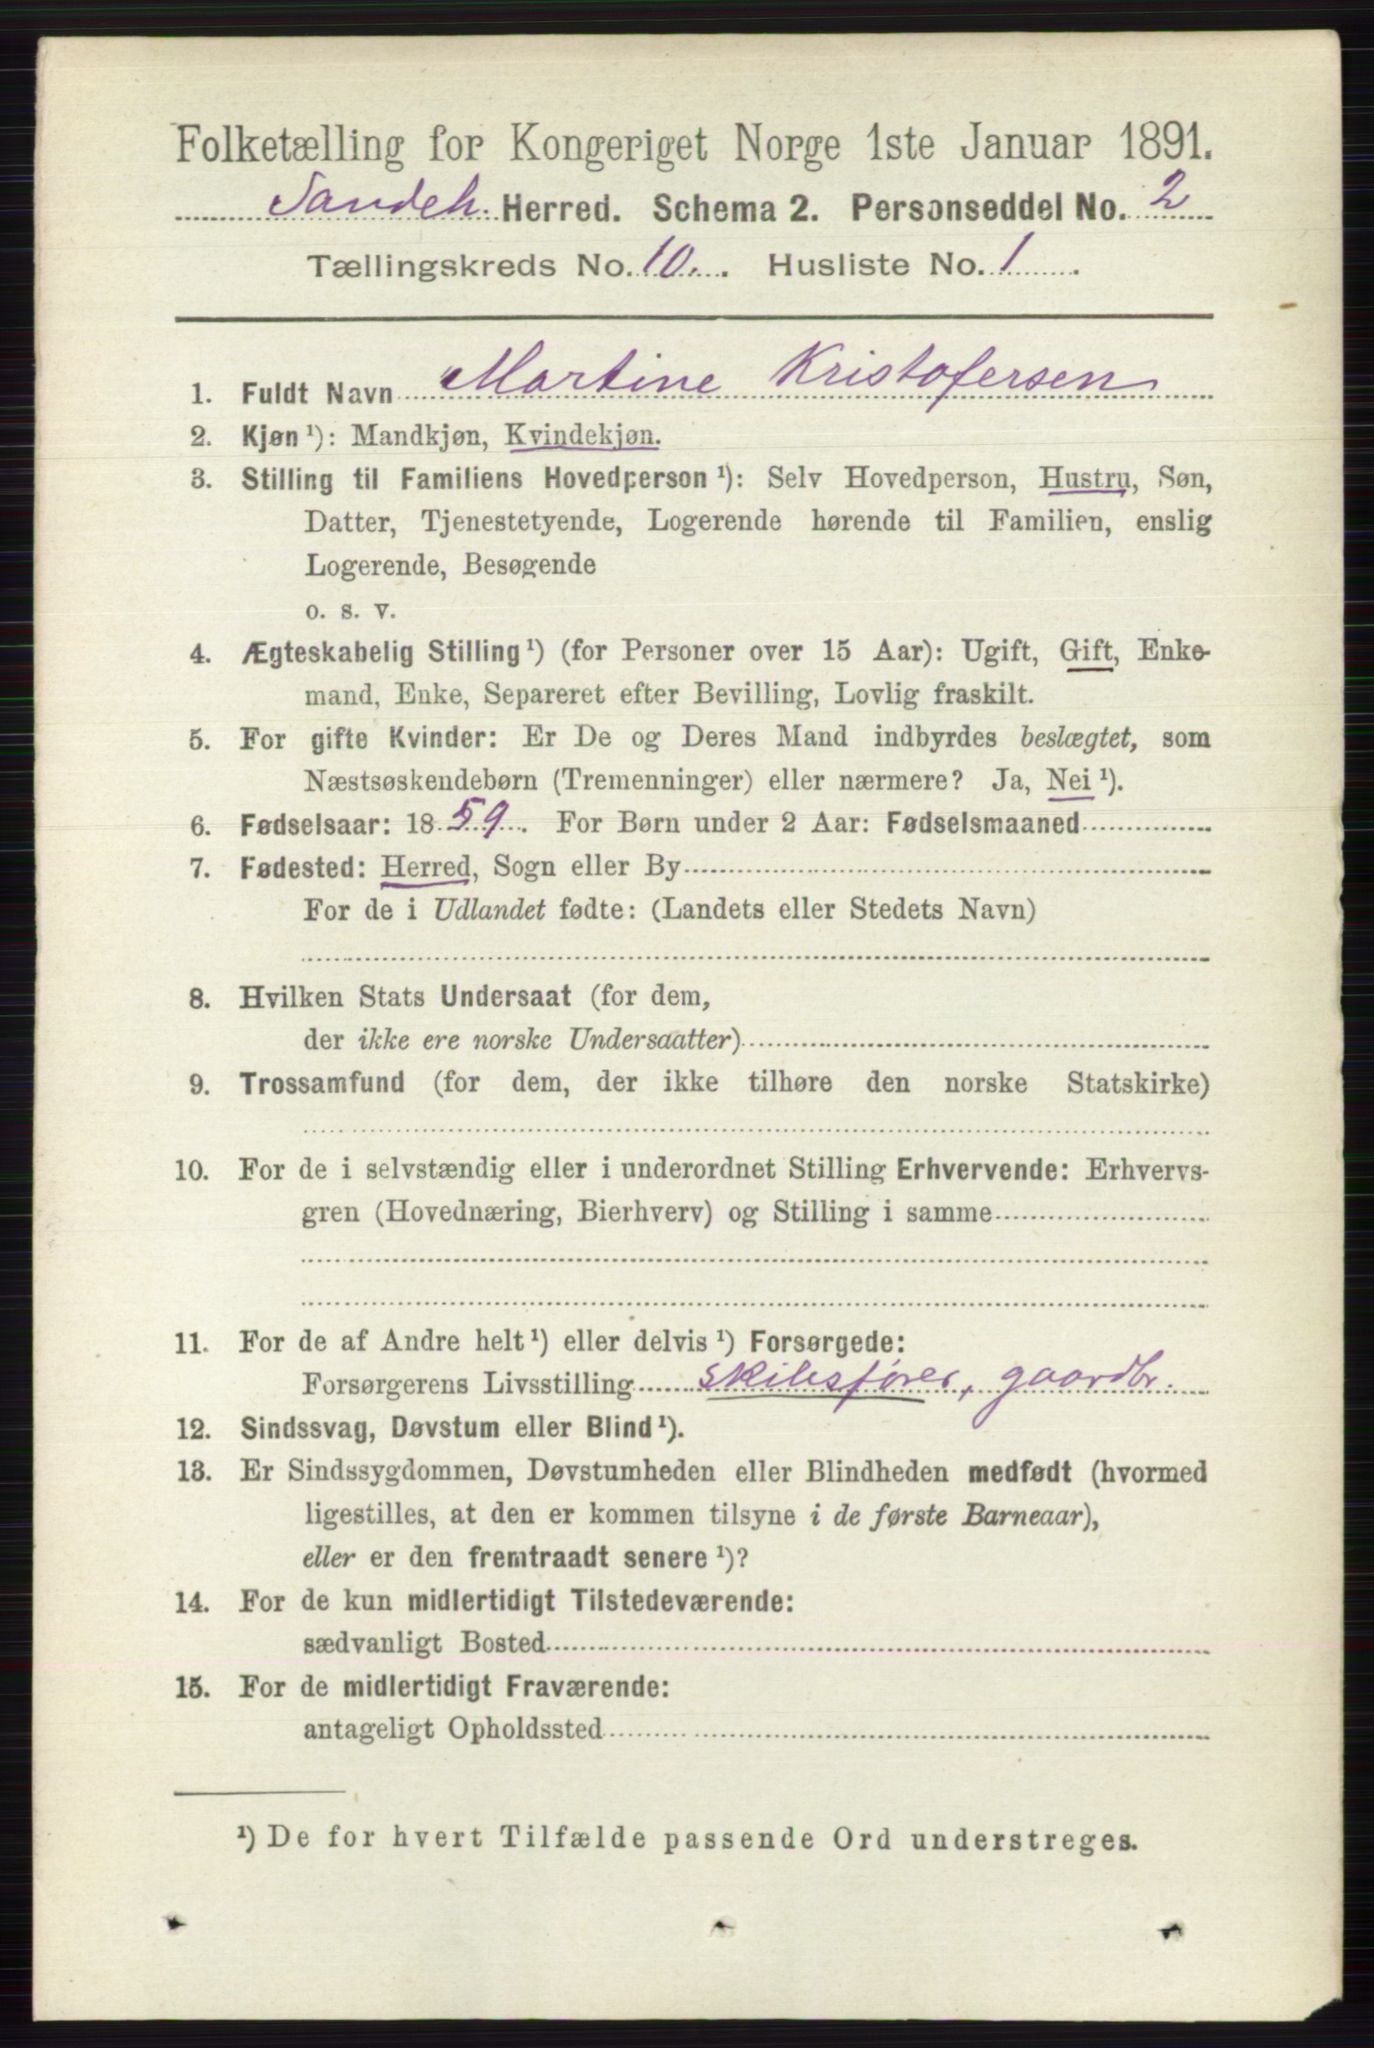 Folketælling for Kongeriget Norge 1ste Januar 1891.
Sandeh. Herred. Schema 2. Personseddel No. 2
Tællingskreds No. 10. Husliste No. 1
1. Fuldt Navn Martine Kristofersen
2. Kjøn ¹): Mandkjøn, Kvindekjøn.
3. Stilling til Familiens Hovedperson ¹): Selv Hovedperson, Hustru, Søn,
Datter, Tjenestetyende, Logerende hørende til Familien, enslig
Logerende, Besøgende
o. s. v.
4. Ægteskabelig Stilling ¹) (for Personer over 15 Aar): Ugift, Gift, Enke-
mand, Enke, Separeret efter Bevilling, Lovlig fraskilt.
5. For gifte Kvinder: Er De og Deres Mand indbyrdes beslægtet, som
Næstsøskendebørn (Tremenninger) eller nærmere? Ja, Nei ¹).
6. Fødselsaar: 1859. For Børn under 2 Aar: Fødselsmaaned
7. Fødested: Herred, Sogn eller By
For de i Udlandet fødte: (Landets eller Stedets Navn)
8. Hvilken Stats Undersaat (for dem,
der ikke ere norske Undersaatter)
9. Trossamfund (for dem, der ikke tilhøre den norske Statskirke)
10. For de i selvstændig eller i underordnet Stilling Erhvervende: Erhvervs-
gren (Hovednæring, Bierhverv) og Stilling i samme
11. For de af Andre helt ¹) eller delvis ¹) Forsørgede:
Forsørgerens Livsstilling skibsfører, gaardbr.
12. Sindssvag, Døvstum eller Blind ¹).
13. Er Sindssygdommen, Døvstumheden eller Blindheden medfødt (hvormed
ligestilles, at den er kommen tilsyne i de første Barneaar),
eller er den fremtraadt senere ¹)?
14. For de kun midlertidigt Tilstedeværende:
sædvanligt Bosted
15. For de midlertidigt Fraværende:
antageligt Opholdssted
¹) De for hvert Tilfælde passende Ord understreges.